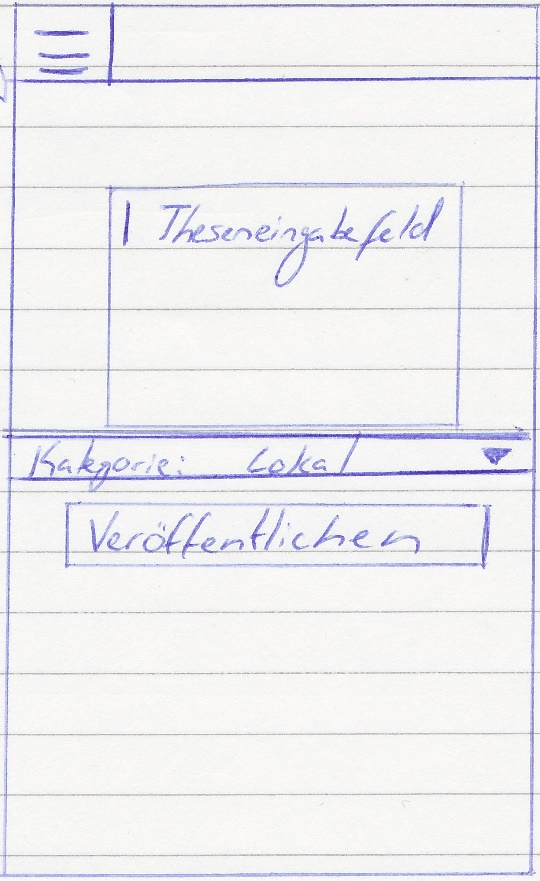 Theseneingabefeld
Kategorie: Lokal
Veröffentlichen